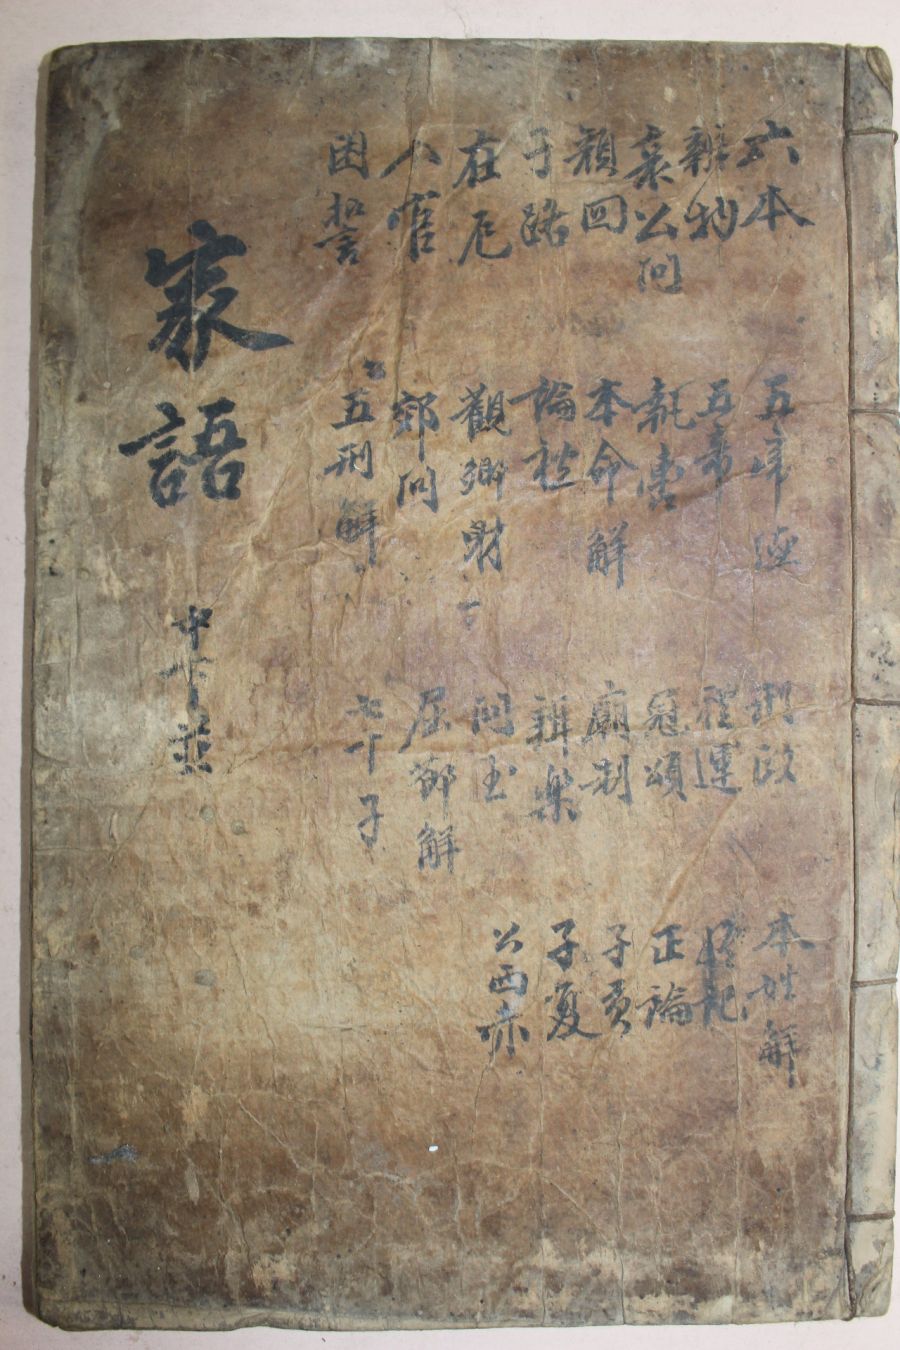 六本
辨物
哀公問
顔回
子路
在厄
入官
困誓
五帝德
五帝
執轡
本命解
論礼
觀鄕射
郊問
五刑解
刑政
禮運
冠頌
廟制
辨樂
問玉
屈節解
七十子
本姓解
終記
正論
子貢
子夏
公西赤
家語
中下